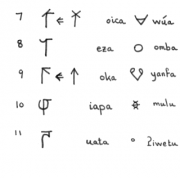 7 ← oica wúa
8 eza omba
9 ← oka yanfa
10 iapa mulu
11 uata